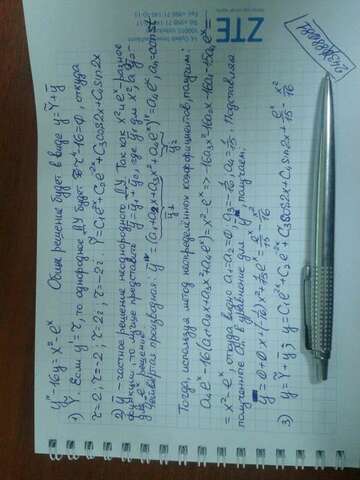 ZTE
y'''' - 16y = x² - e^x Общее решение будет в виде y = Y + ȳ
1) Y. Если y = τ, то однородное ДУ будет τ⁴ - 16 = 0, откуда
τ = 2, τ = -2, τ = 2i, τ = -2i. Y = C₁e^2x + C₂e^-2x + C₃cos2x + C₄sin2x
2) ȳ - частное решение неоднородного ДУ. Так как x² и e^x - разные
функции, то лучше представить ȳ = y₁ + y₂, где y₁ для x², а y₂ -
для e^x. решение
Четвёртая производная: ȳ^IV = (a₁ + a₂x + a₃x² + a₄e^x)^IV = a₄e^x, a₄ = const
y₁ y₂
Тогда, используя метод неопределённых коэффициентов, получим:
a₄e^x - 16(a₁ + a₂x + a₃x² + a₄e^x) = x² - e^x => -16a₃x² - 16a₂x - 16a₁ - 15a₄e^x =
= x² - e^x, откуда видно a₁ = a₂ = 0, a₃ = -1/16, a₄ = 1/15. Подставляя
полученное в уравнение для ȳ, получаем:
ȳ = 0 + 0·x + (-1/16)x² + 1/15 e^x = e^x/15 - x²/16
3) y = Y + ȳ; y = C₁e^2x + C₂e^-2x + C₃cos2x + C₄sin2x + e^x/15 - x²/16